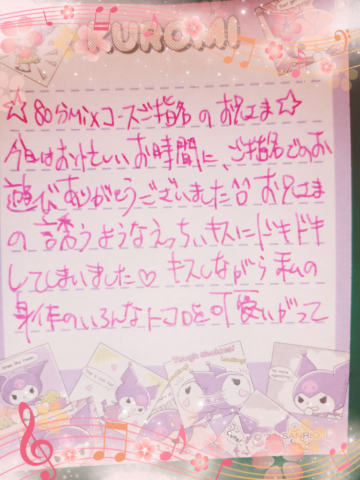 KUROMI
☆80分Mixコースご指名のお兄さま☆
今日はお忙しいお時間に、ご指名でのお
遊びありがとうございました!! お兄さま
の誘うようなえっちぃキスにドキドキ
してしまいました♡ キスしながら私の
身体のいろんなトコロを可愛いがって
SANRIO